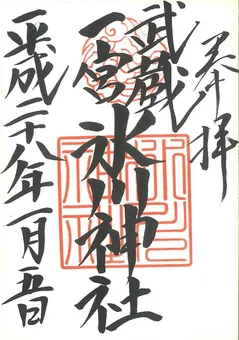 奉拝
武蔵
一宮
氷川神社
平成二十八年一月五日